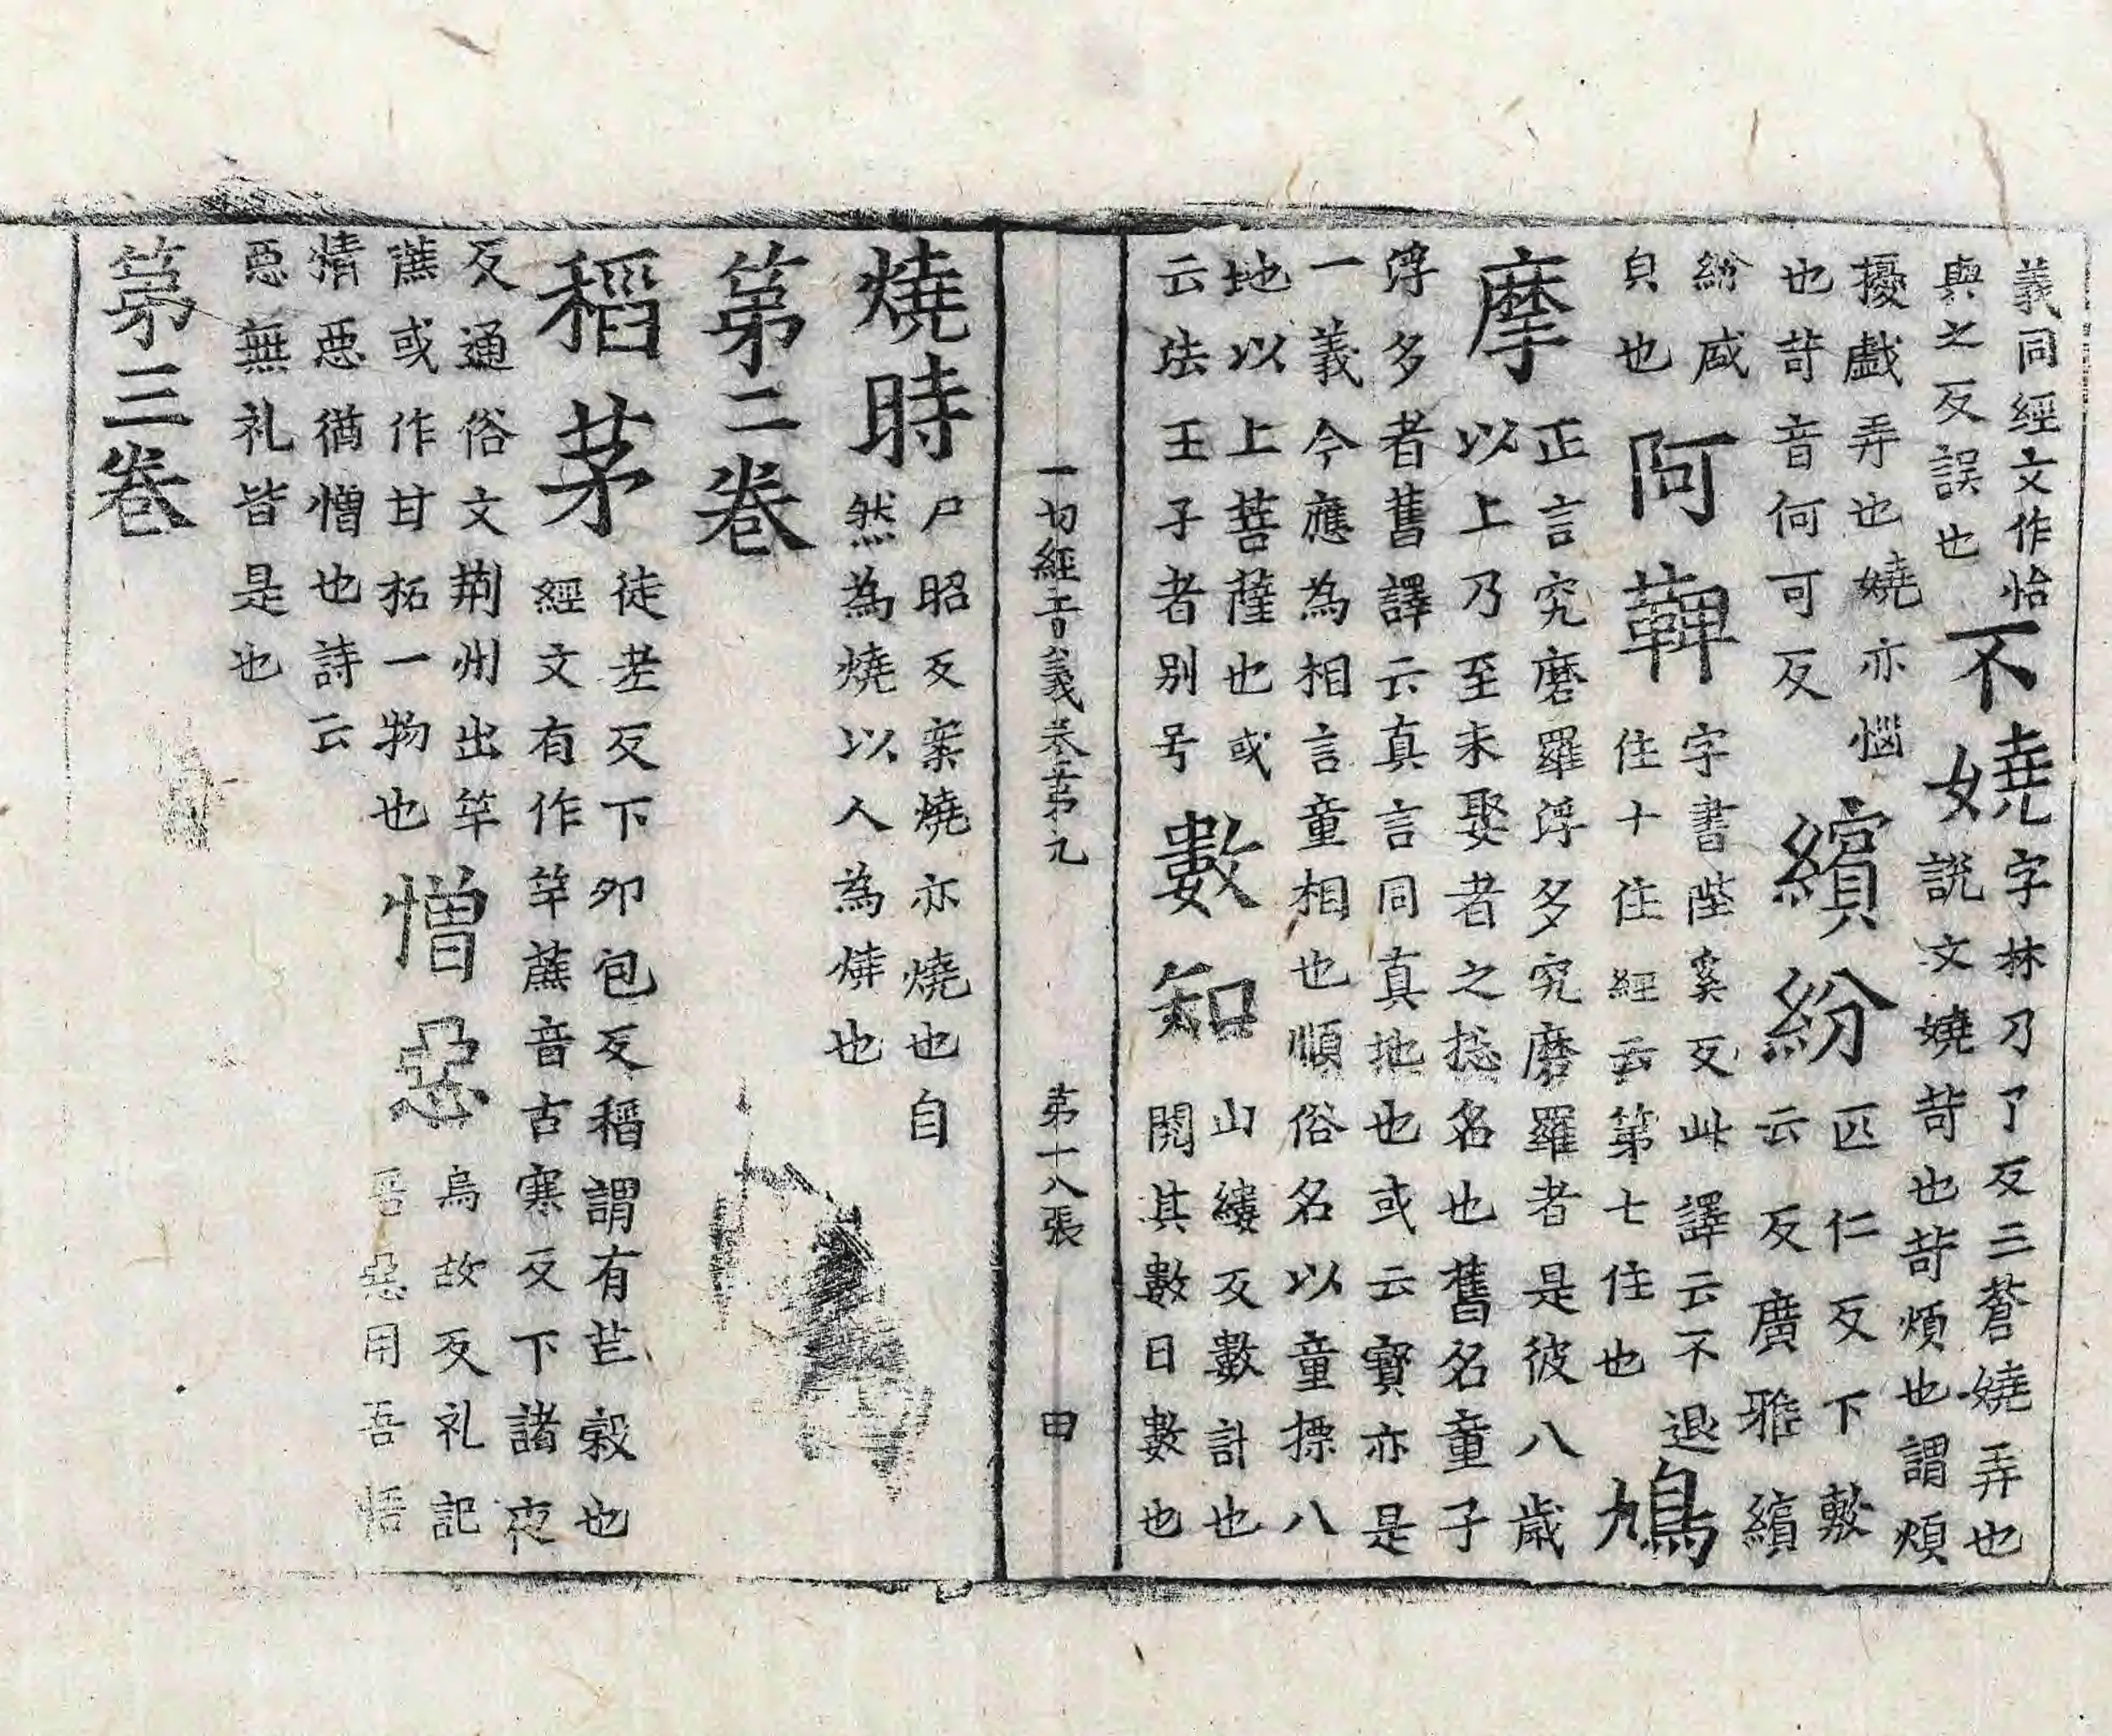 義同經文作怡
與之反誤也
不嬈
字林乃了反三蒼嬈弄也
說文嬈苛也苛煩也謂煩
擾戲弄也嬈亦惱
也苛音何可反
繽紛
匹仁反下敷
云反廣雅繽
紛盛
皃也
阿鞞
字書陛奚反此譯云不退
住十住經云第七住也
鳩
摩
正言究磨羅浮多究磨羅者是彼八歲
以上乃至未娶者之捴名也舊名童子
浮多者舊譯云真言同真地也或云實亦是
一義今應為相言童相也順俗名以童摽八
地以上菩薩也或
云法王子者別号
數知
山縷反數計也
閱其數曰數也
一切經音義卷第九 第十八張 田
燒時
尸昭反案燒亦燒也自
然為燒以人為也
第二卷
稻茅
徒老反下卯包反稻謂有芒穀也
經文有作竿蔗音古寒反下諸夜
反通俗文荊州出竿
蔗或作甘柘一物也
憎惡
烏故反礼記
吾惡用吾悟
情惡猶憎也詩云
惡無礼皆是也
第三卷